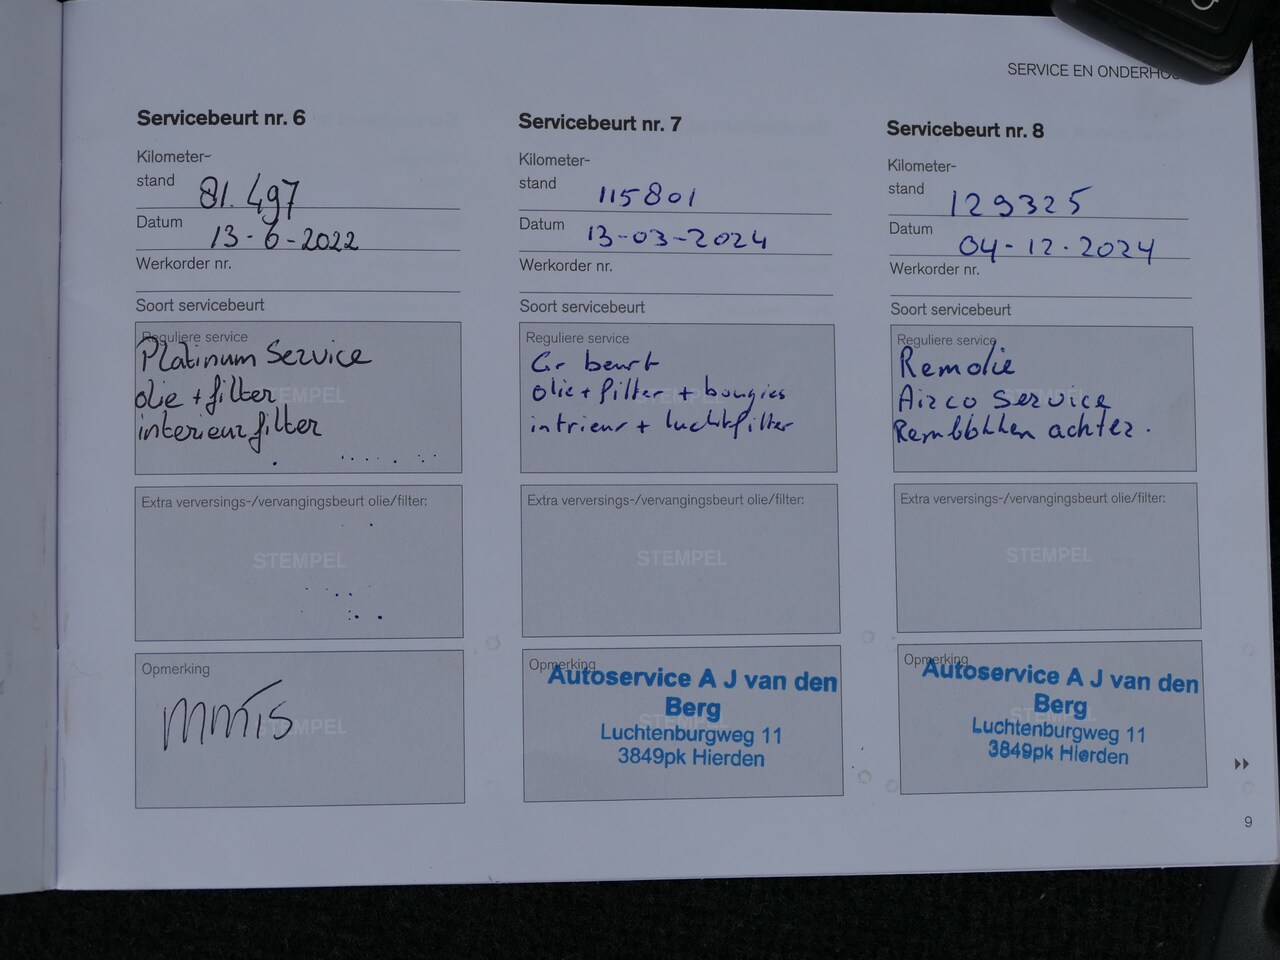 SERVICE EN ONDERHOU
Servicebeurt nr. 6
Kilometer-
stand 81.497
Datum 13-6-2022
Werkorder nr.
Soort servicebeurt
Reguliere service
Platinum Service
olie + filter
interieurfilter
STEMPEL
Extra verversings-/vervangingsbeurt olie/filter:
STEMPEL
Opmerking
STEMPEL
Servicebeurt nr. 7
Kilometer-
stand 115801
Datum 13-03-2024
Werkorder nr.
Soort servicebeurt
Reguliere service
Gr beurt
olie + filter + bougies
intrieur + luchtfilter
Extra verversings-/vervangingsbeurt olie/filter:
STEMPEL
Opmerking
STEMPEL
Autoservice A J van den
Berg
Luchtenburgweg 11
3849pk Hierden
Servicebeurt nr. 8
Kilometer-
stand 129325
Datum 04-12-2024
Werkorder nr.
Soort servicebeurt
Reguliere service
Remolie
Airco service
Remblokken achter.
Extra verversings-/vervangingsbeurt olie/filter:
STEMPEL
Opmerking
STEMPEL
Autoservice A J van den
Berg
Luchtenburgweg 11
3849pk Hierden
9